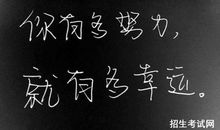 你有多努力,
就有多幸运。
招生考试网